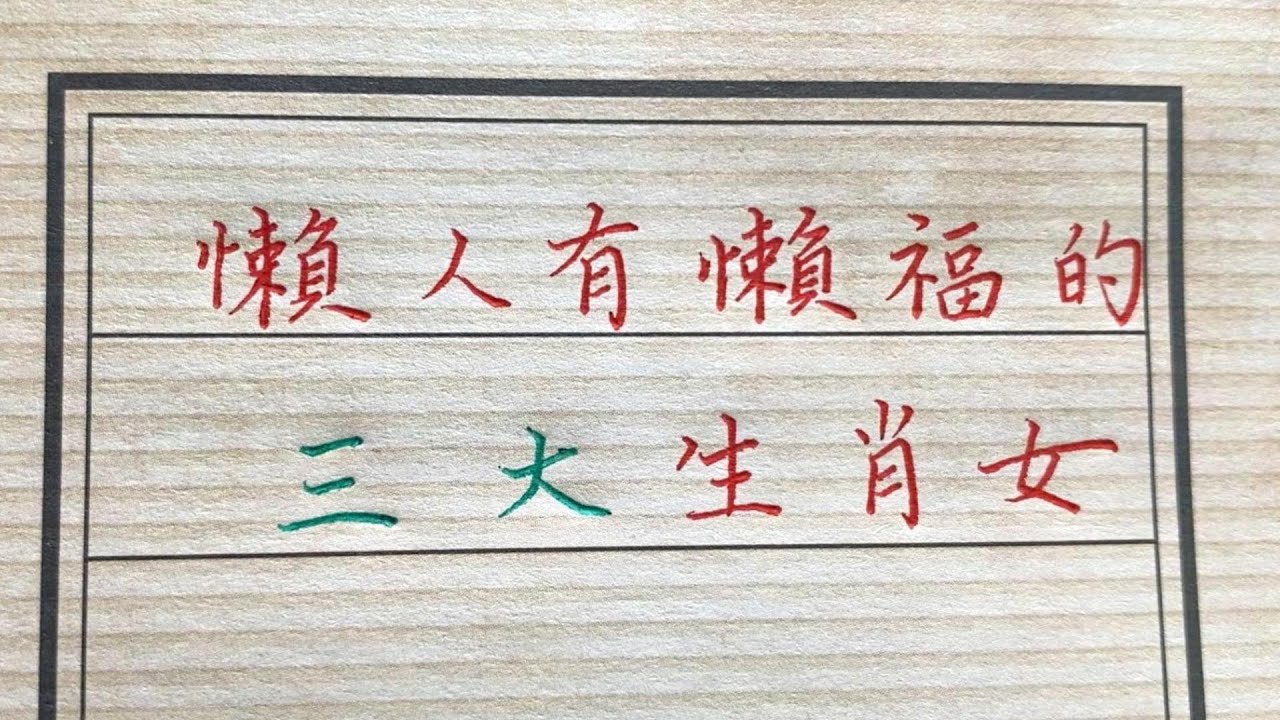 懶人有懶福的
三大生肖女